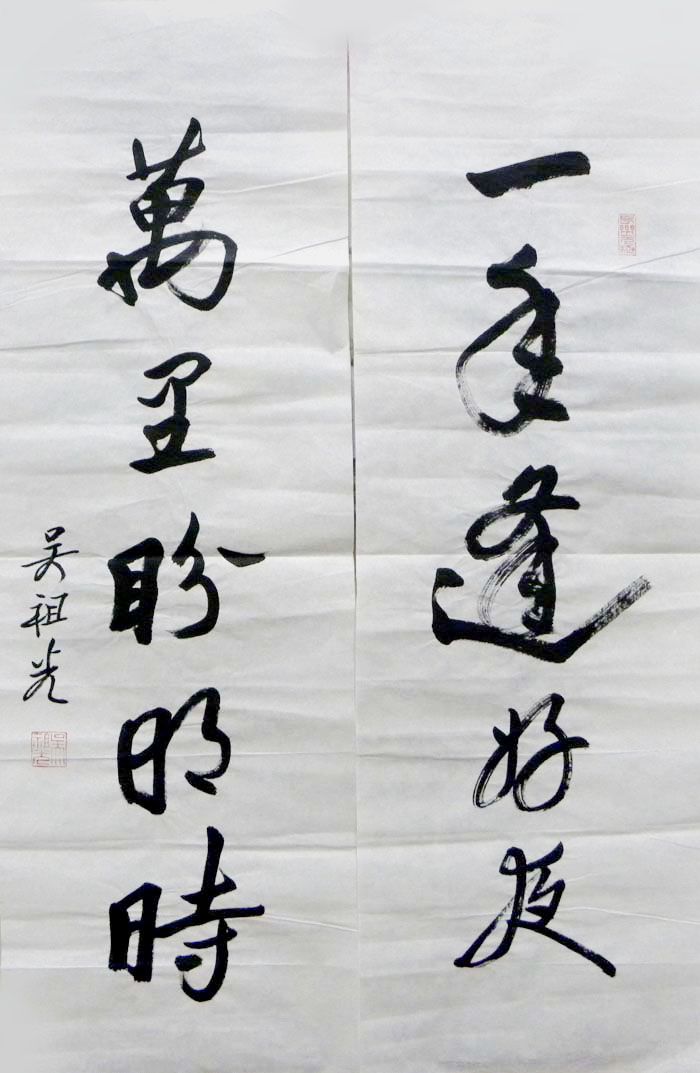 一年逢好夜
萬里盼明時
吴祖光